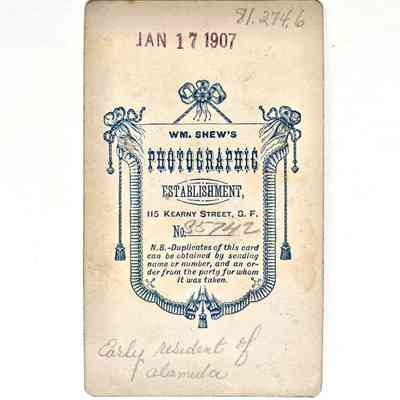 81.274.6
JAN 17 1907
WM. SHEW'S
PHOTOGRAPHIC
ESTABLISHMENT,
115 KEARNY STREET, S. F.
No. 35742
N.B.-Duplicates of this card
can be obtained by sending
name or number, and an or-
der from the party for whom
it was taken.
Early resident of
Alameda